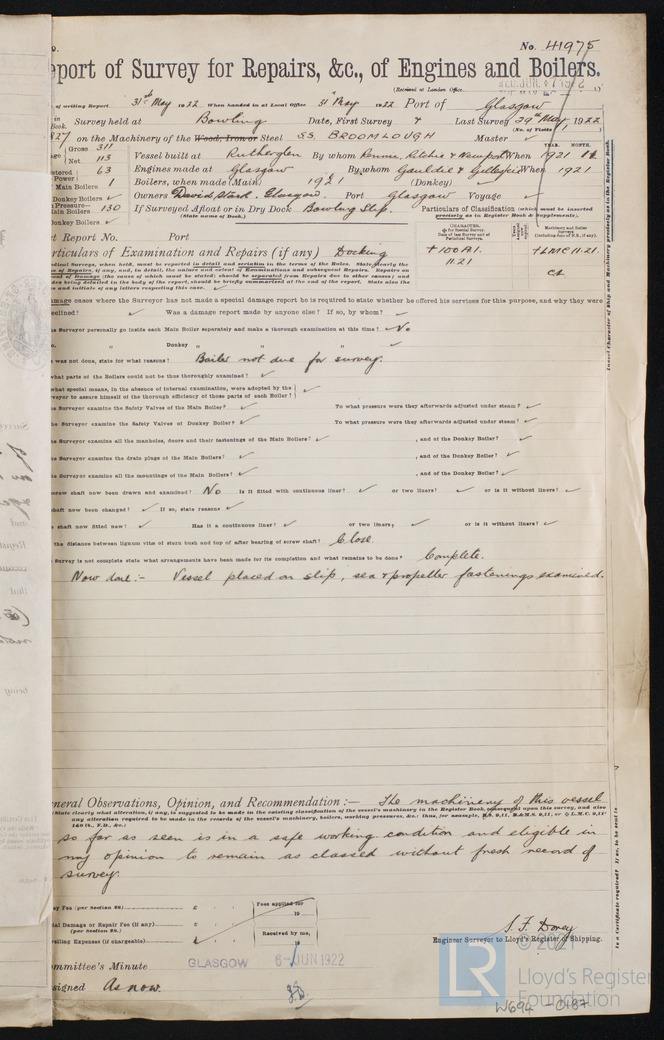 No. 41975
eport of Survey for Repairs, &c., of Engines and Boilers.
(Received at London Office
of writing Report 31st May 1922 When handed in at Local Office 31 May 1922 Port of Glasgow
in Book. Survey held at Bowling Date, First Survey & Last Survey 29th May, 1922
(No. of Visits 1)
827 on the Machinery of the Wood, Iron or Steel S.S. BROOMLOUGH Master ✓
Gross 311
Net 113
Vessel built at Rutherglen By whom Rennie, Ritchie & Newport When 1921 11
YEAR. MONTH.
63 Engines made at Glasgow By whom Gauldie & Gillespie When 1921
Main Boilers 1 Boilers, when made (Main) 1921 (Donkey) ✓
Donkey Boilers ✓ Owners David Stark, Glasgow. Port Glasgow Voyage ✓
Pressure—
Main Boilers 130 If Surveyed Afloat or in Dry Dock Bowling Slip.
(State name of Dock.)
Donkey Boilers ✓
Particulars of Classification (which must be inserted
precisely as in Register Book & Supplements).
CHARACTER.
Machinery and Boiler Surveys
+ 100 A1. + LMC 11.21
11.21 CS
t Report No. Port
rticulars of Examination and Repairs (if any) Docking
amage cases where the Surveyor has not made a special damage report he is required to state whether he offered his services for this purpose, and why they were
eclined? ✓ Was a damage report made by anyone else? If so, by whom? ✓
he Surveyor personally go inside each Main Boiler separately and make a thorough examination at this time? No
" Donkey " " " ✓
was not done, state for what reasons? Boiler not due for survey.
what parts of the Boilers could not be thus thoroughly examined? ✓
what special means, in the absence of internal examination, were adopted by the
veyor to assure himself of the thorough efficiency of those parts of each Boiler? ✓
he Surveyor examine the Safety Valves of the Main Boiler? ✓ To what pressure were they afterwards adjusted under steam? ✓
he Surveyor examine the Safety Valves of Donkey Boiler? ✓ To what pressure were they afterwards adjusted under steam? ✓
he Surveyor examine all the manholes, doors and their fastenings of the Main Boilers? ✓ , and of the Donkey Boiler? ✓
he Surveyor examine the drain plugs of the Main Boilers? ✓ , and of the Donkey Boiler? ✓
he Surveyor examine all the mountings of the Main Boilers? ✓ , and of the Donkey Boiler? ✓
crew shaft now been drawn and examined? No Is it fitted with continuous liner? ✓ or two liners? ✓ or is it without liners? ✓
shaft now been changed? ✓ If so, state reasons ✓
shaft now fitted new? ✓ Has it a continuous liner? ✓ or two liners? ✓ or is it without liners? ✓
the distance between lignum vitæ of stern bush and top of after bearing of screw shaft? Close.
Survey is not complete state what arrangements have been made for its completion and what remains to be done? Complete.
Now done:- Vessel placed on slip, sea & propeller fastenings examined.
neral Observations, Opinion, and Recommendation:— The machinery of this vessel
so far as seen is in a safe working condition and eligible in
my opinion to remain as classed without fresh record of
survey.
ey Fee (per Section 29) £ : : Fees applied for
19
ial Damage or Repair Fee (if any) £ : :
(per Section 29.)
velling Expenses (if chargeable) £ : : Received by me,
19
S. F. Dorey
Engineer Surveyor to Lloyd's Register of Shipping.
© 2021
ommittee's Minute GLASGOW 6-JUN 1922
ssigned As now.
LR
Lloyd's Register
Foundation
W694-0187